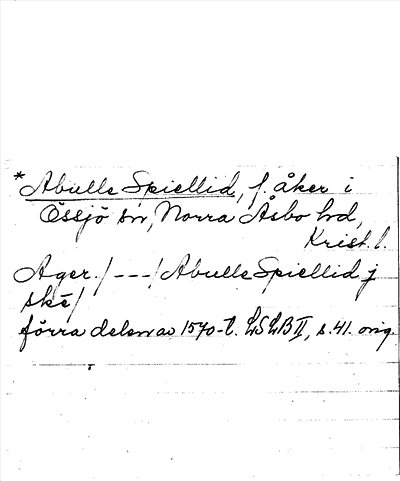 *Abulle Spiellid, f. åker i
Össjö sn, Norra Åsbo hd,
Krist. l.
Ager. /---/ Abulle Spiellid j
skē/
förra delen av 1570-t. LSLB II, s. 41. orig.